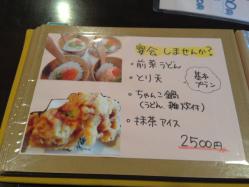 宴会しませんか?
・前菜うどん
・とり天
基本
プラン
・ちゃんこ鍋
(うどん、雑炊付)
・抹茶アイス
2500円